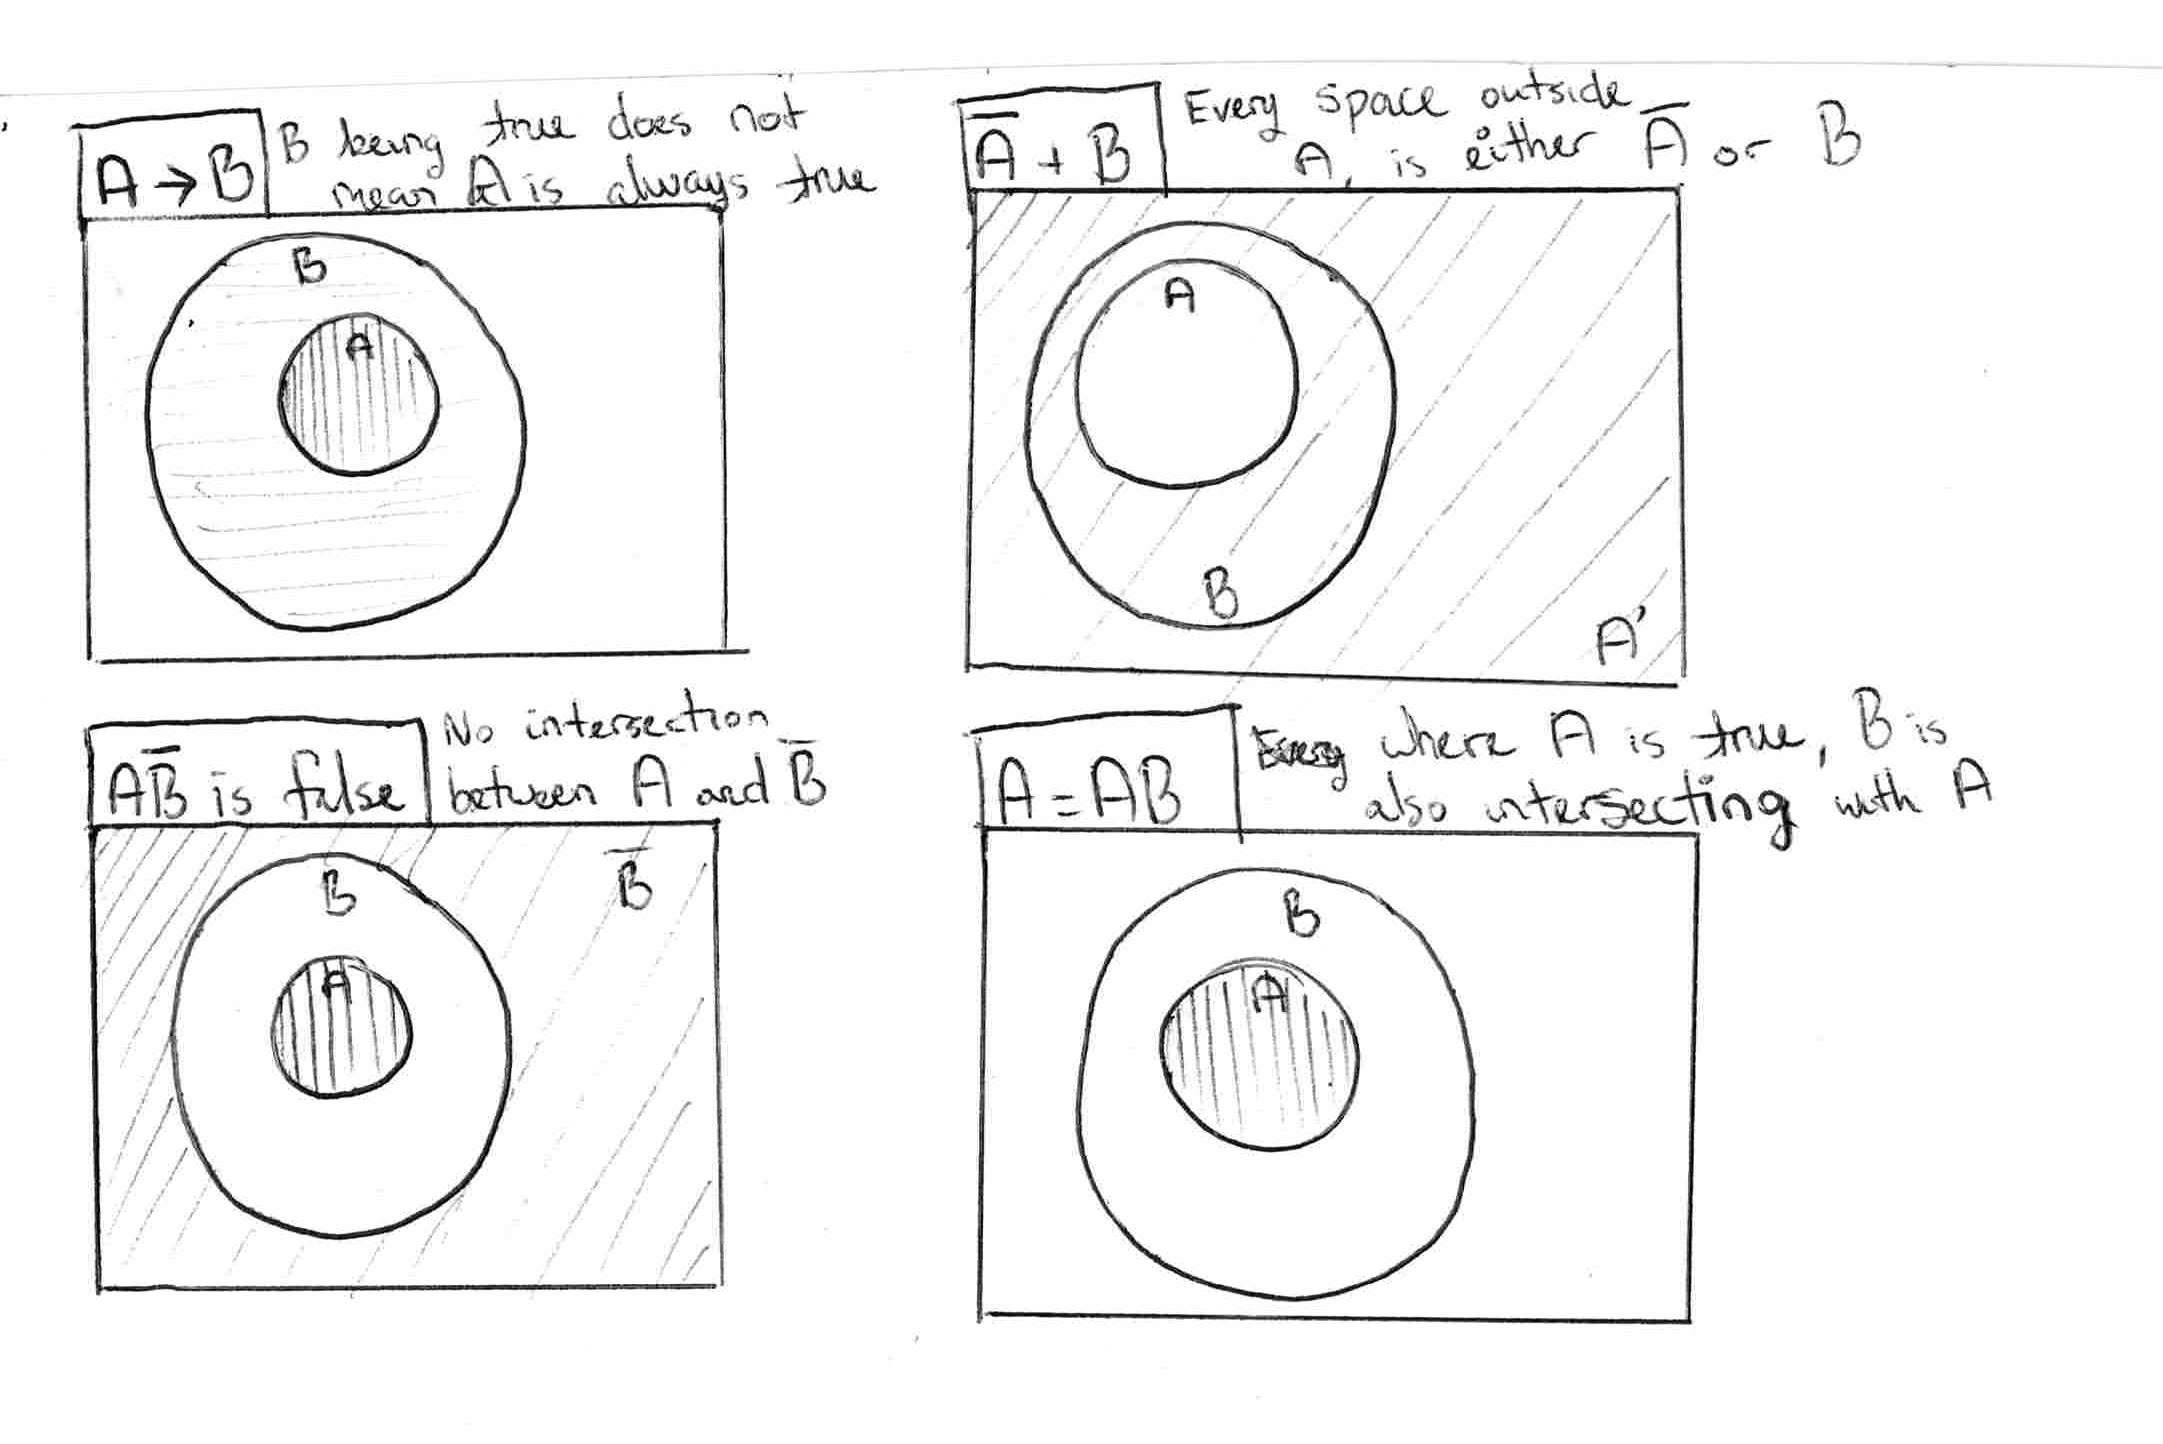 A → B
B being true does not
mean A is always true
B
A
A̅ + B
Every space outside
A, is either A̅ or B
A
B
A'
AB̅ is false
No intersection
between A and B̅
B
B̅
A
A = AB
Every where A is true, B is
also intersecting with A
B
A